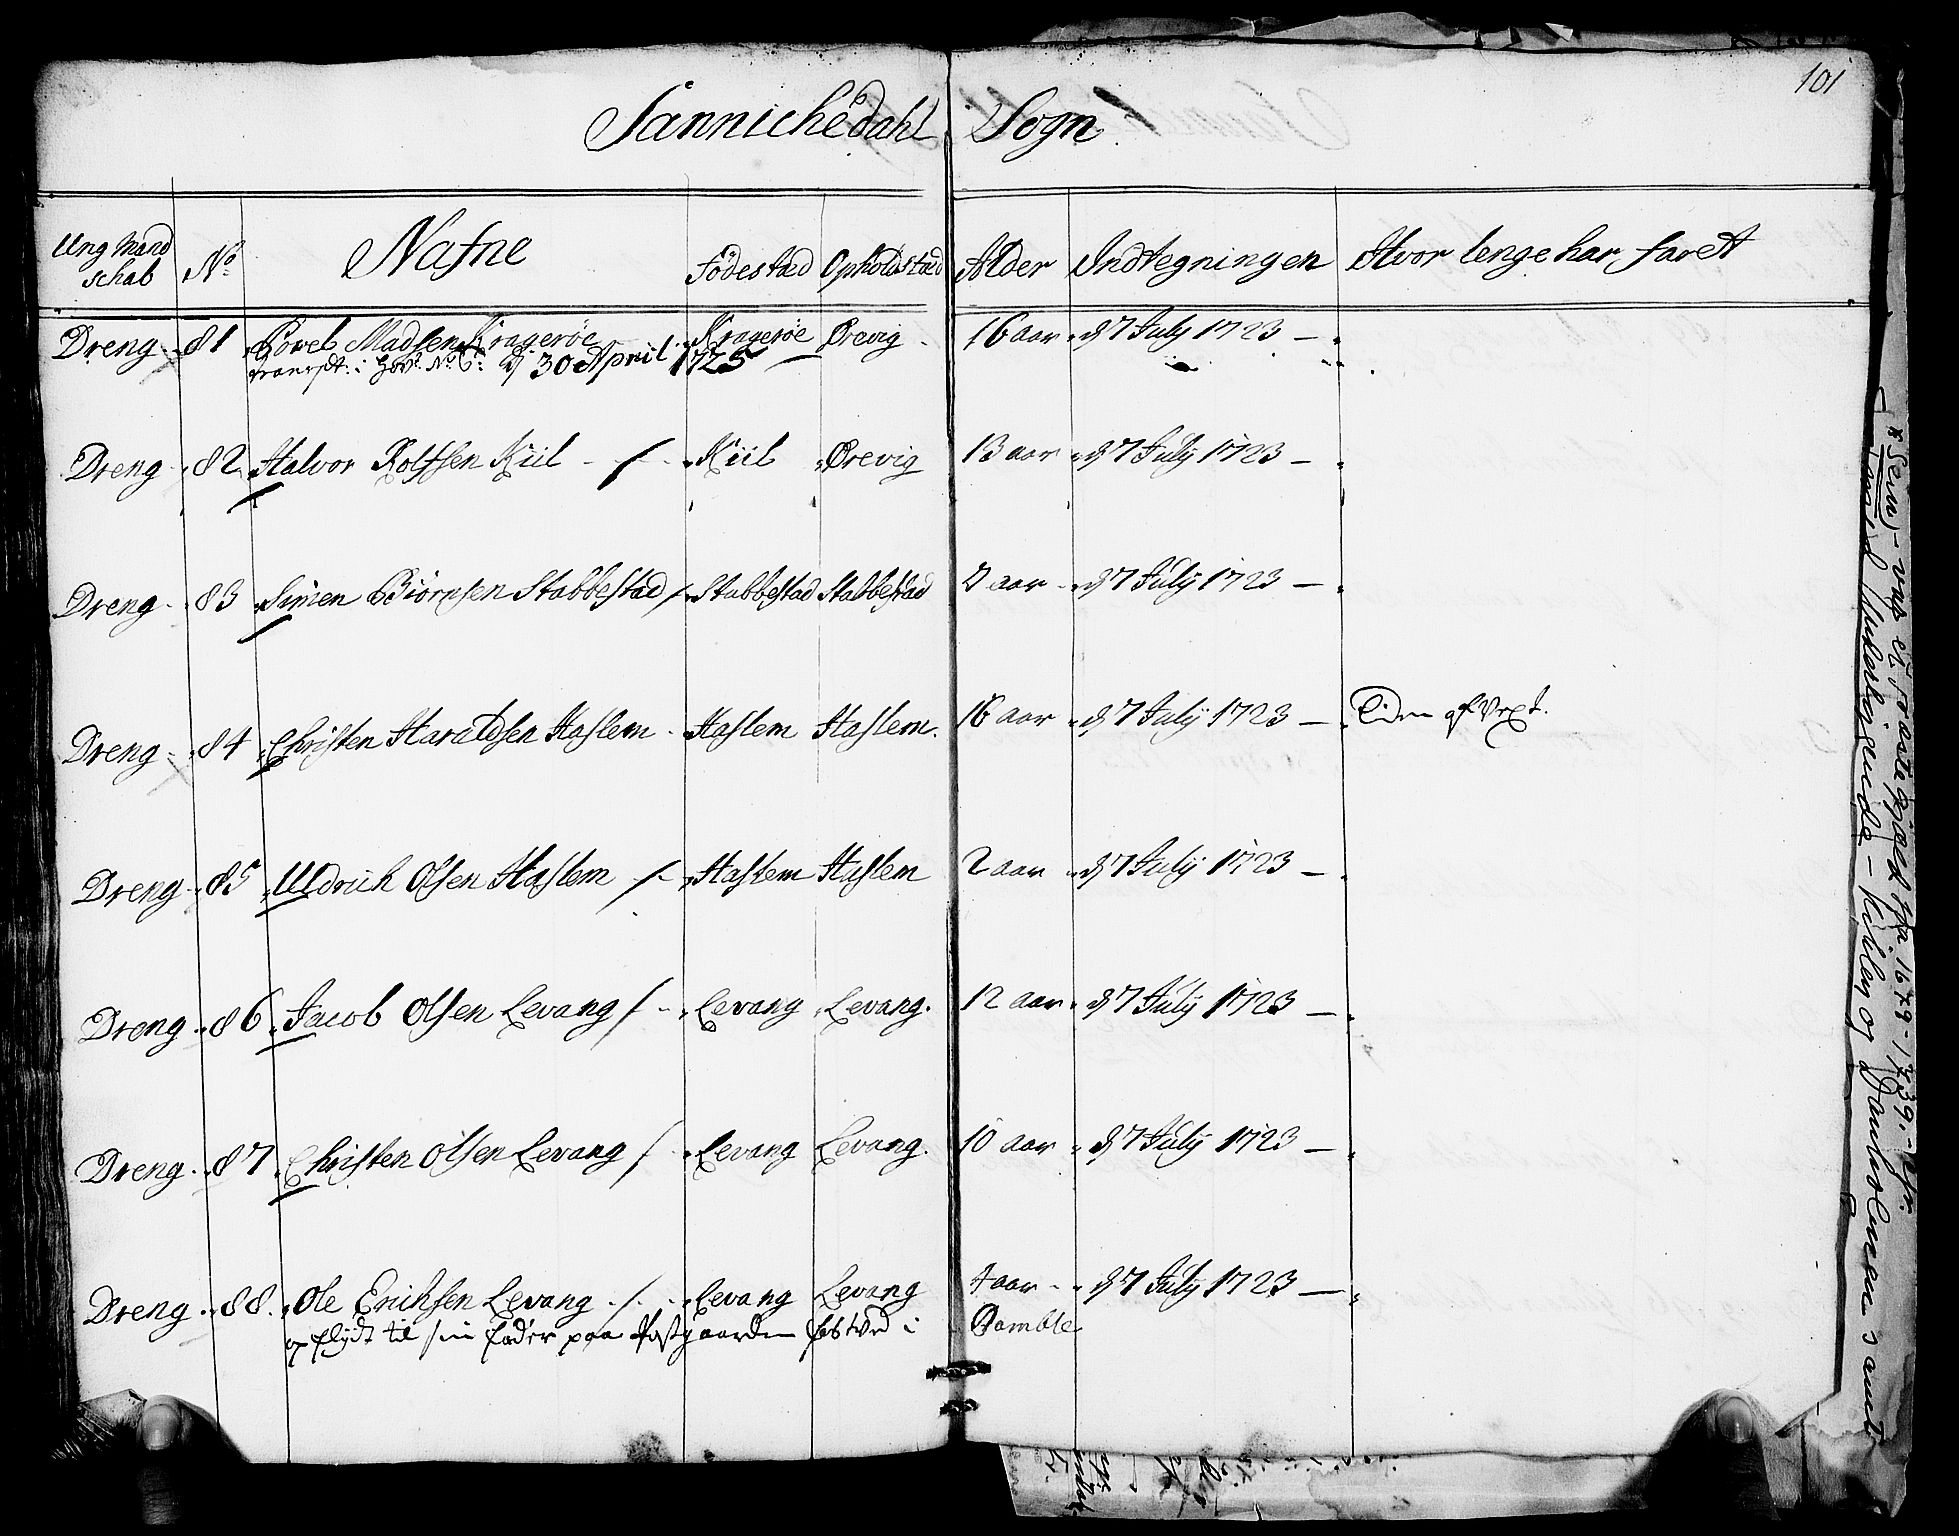 101
Sannichedahl Sogn
Ung Mand schab No Nafne Födestæd Opholdstæd Alder Indtegningen Hvor lenge har faret
Dreng 81 Povel Madsen Kragerøe Kragerøe Ørevig 16 aar d 7 July 1723
30 April 1725
Dreng 82 Halvor Rolfsen Kiil Kiil Ørevig 13 aar d 7 July 1723
Dreng 83 Simen Biörnsen Stabbestad Stabbestad Stabbestad 2 aar d 7 July 1723
Dreng 84 Christen Haraldsen Haslem Haslem Haslem 16 aar d 7 July 1723
Dreng 85 Uldrich Olsen Haslem Haslem Haslem 2 aar d 7 July 1723
Dreng 86 Jacob Olsen Levang Levang Levang 12 aar d 7 July 1723
Dreng 87 Christen Olsen Levang Levang Levang 10 aar d 7 July 1723
Dreng 88 Ole Erichsen Levang Levang Levang 4 aar d 7 July 1723
flydt til sin fader paa i Bamble
var et fra 1679-1739
og Danholmen samt